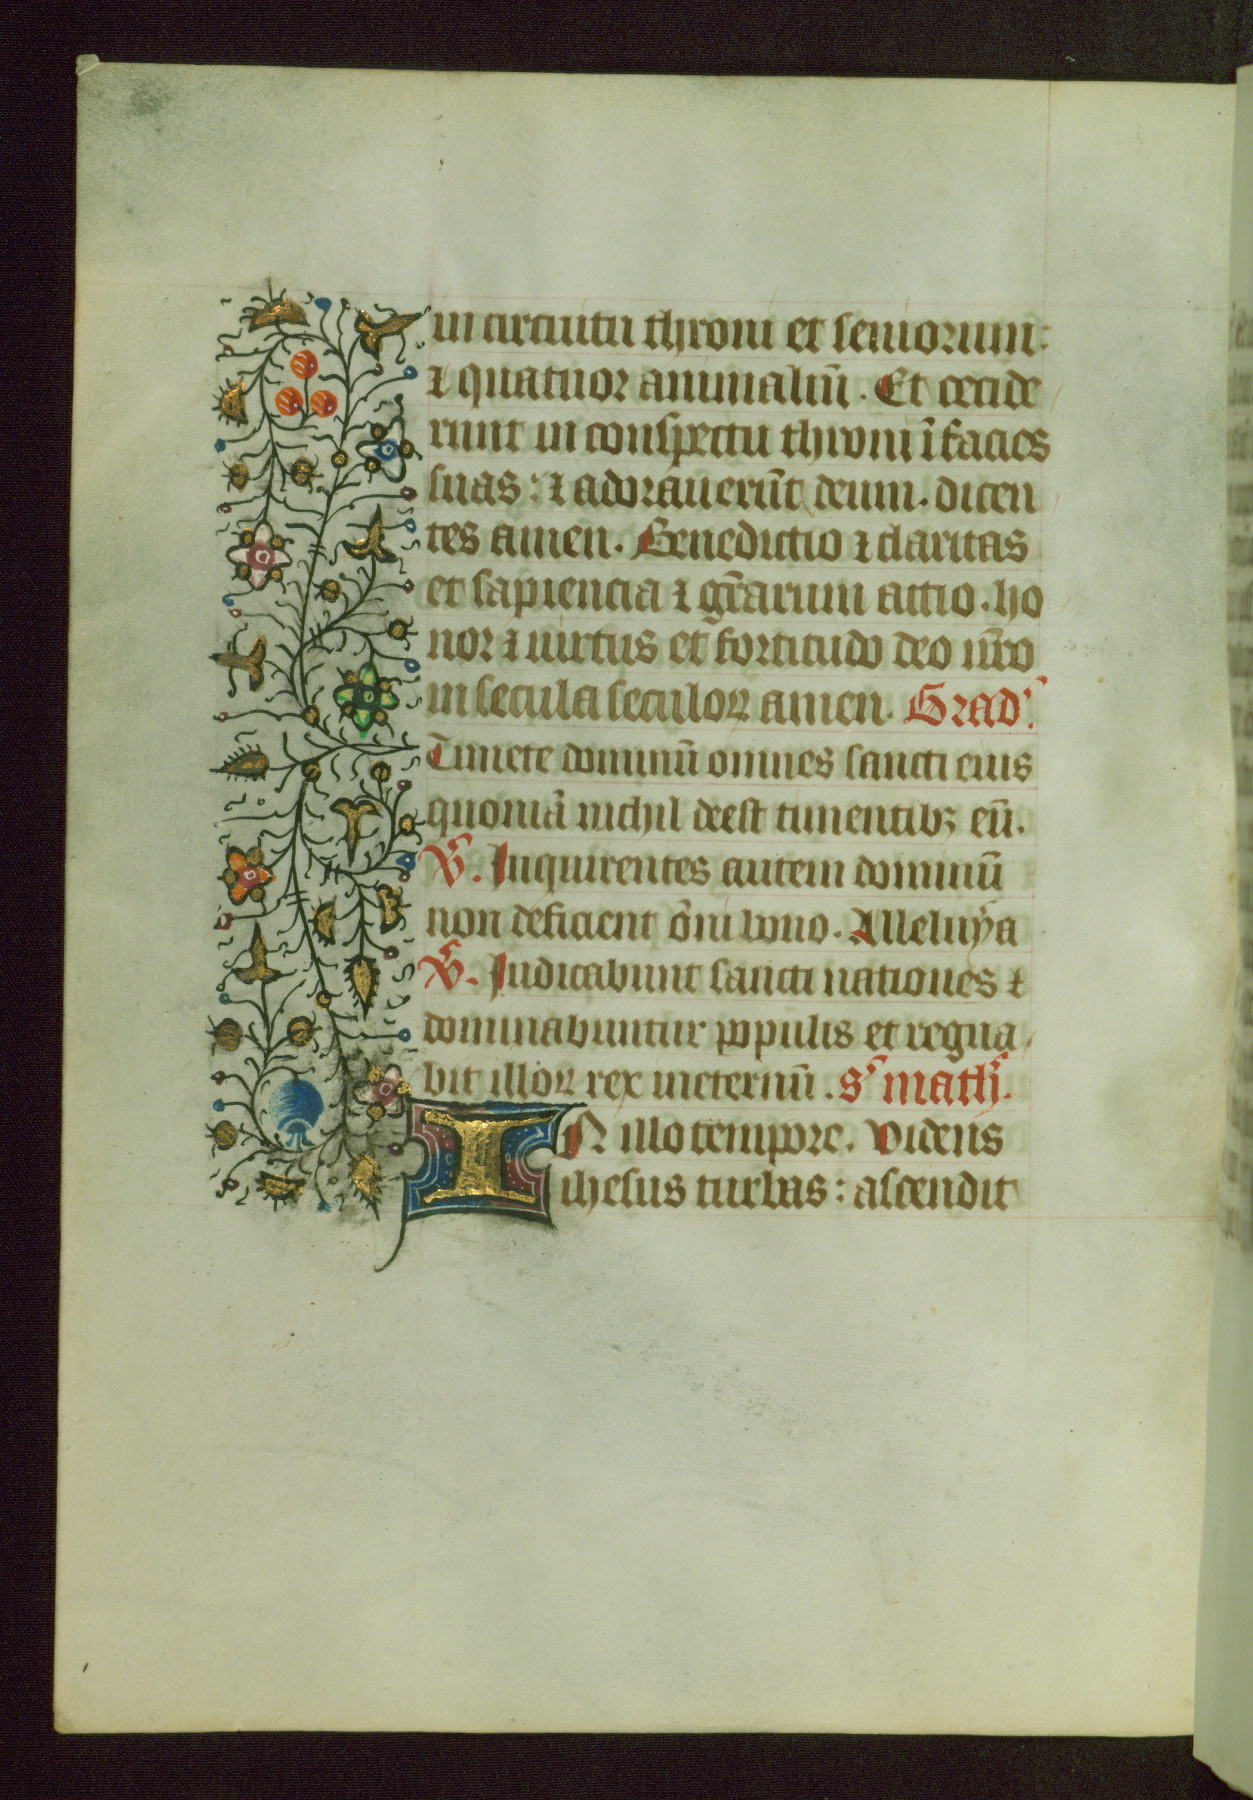 in circuitu throni et seniorum:
⁊ quatuor animaliū. Et cecide
runt in conspectu throni ī facies
suas: ⁊ adorauerūt deum. dicen
tes amen. Benedictio ⁊ claritas
et sapiencia ⁊ gr̄arum actio. ho
nor ⁊ uirtus et fortitudo deo nr̄o
in secula seculoꝝ amen. Grad'.
Timete dominū omnes sancti eius
quoniā nichil deest timentibꝫ eū.
V'. Inquirentes autem dominū
non deficient om̄i bono. Alleluya
V'. Iudicabunt sancti nationes ⁊
dominabuntur populis et regna
bit illoꝝ rex ineternū. S' math'.
IN illo tempore. Videns
ihesus turbas: ascendit